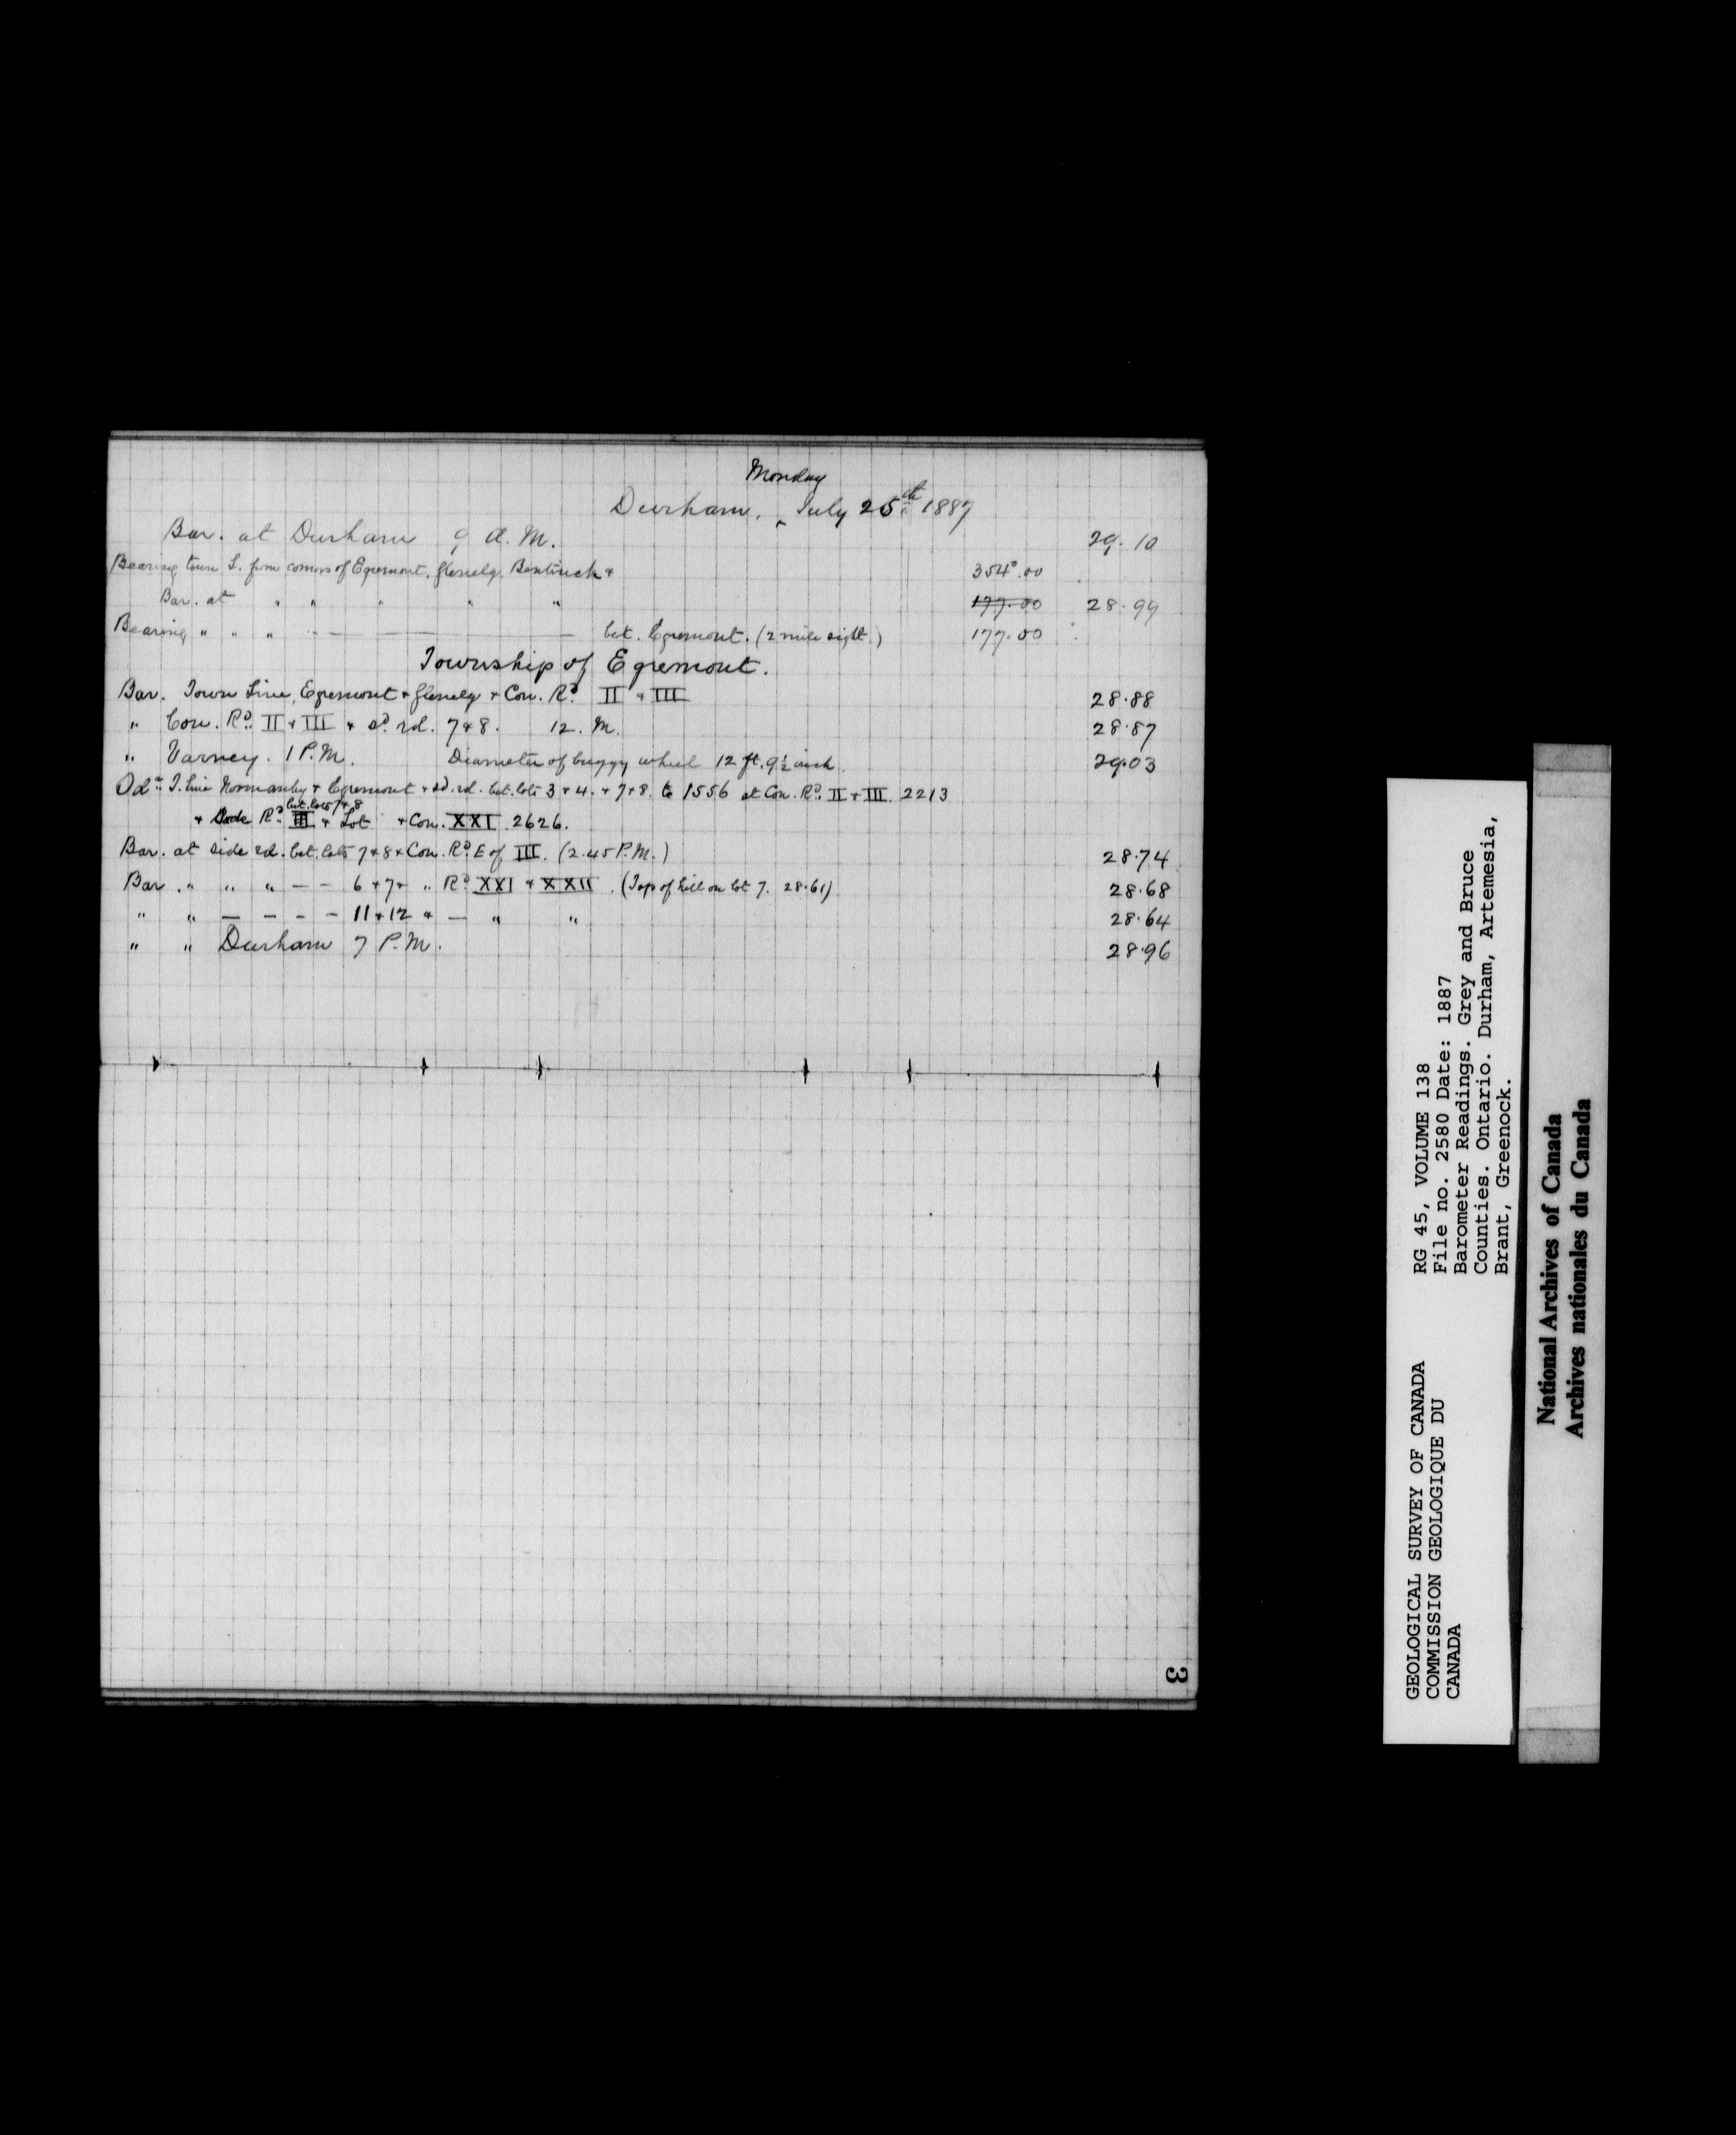 Monday
Durham. ‸ July 25th 1887
Bar. at Durham 9 A. M. 29.10
Bearing town L. from corners of Egremont, Glenelg, Bentinck & 354°.00
Bar. at " " " " " 177.00 28.99
Bearing " " " — — — bet. Egremont. (2 mile sight) 177.00
Township of Egremont.
Bar. Town Line, Egremont & Glenelg & Con. Rd. II & III 28.88
" Con. Rd. II & III & sd. rd. 7 & 8. 12. M. 28.87
" Varney. 1 P.M. Diameter of buggy wheel 12 ft. 9½ inch. 29.03
Odr. T. line Normanby & Egremont & sd. rd. bet. lots 3 & 4. & 7 & 8. to 1556 at Con. Rd. II & III. 2213
bet. lots 7 & 8
& Side Rd. III & Lot & Con. XXI 2626.
Bar. at side rd. bet. lots 7 & 8 & Con. Rd. E of III. (2.45 P.M.) 28.74
Bar. " " " — — 6 & 7 & " Rd. XXI & XXII. (Top of hill on lot 7. 28.61) 28.68
" " — — — — 11 & 12 & — " " 28.64
" " Durham 7 P.M. 28.96
3
GEOLOGICAL SURVEY OF CANADA
COMMISSION GEOLOGIQUE DU
CANADA
RG 45, VOLUME 138
File no. 2580 Date: 1887
Barometer Readings. Grey and Bruce
Counties. Ontario. Durham, Artemesia,
Brant, Greenock.
National Archives of Canada
Archives nationales du Canada